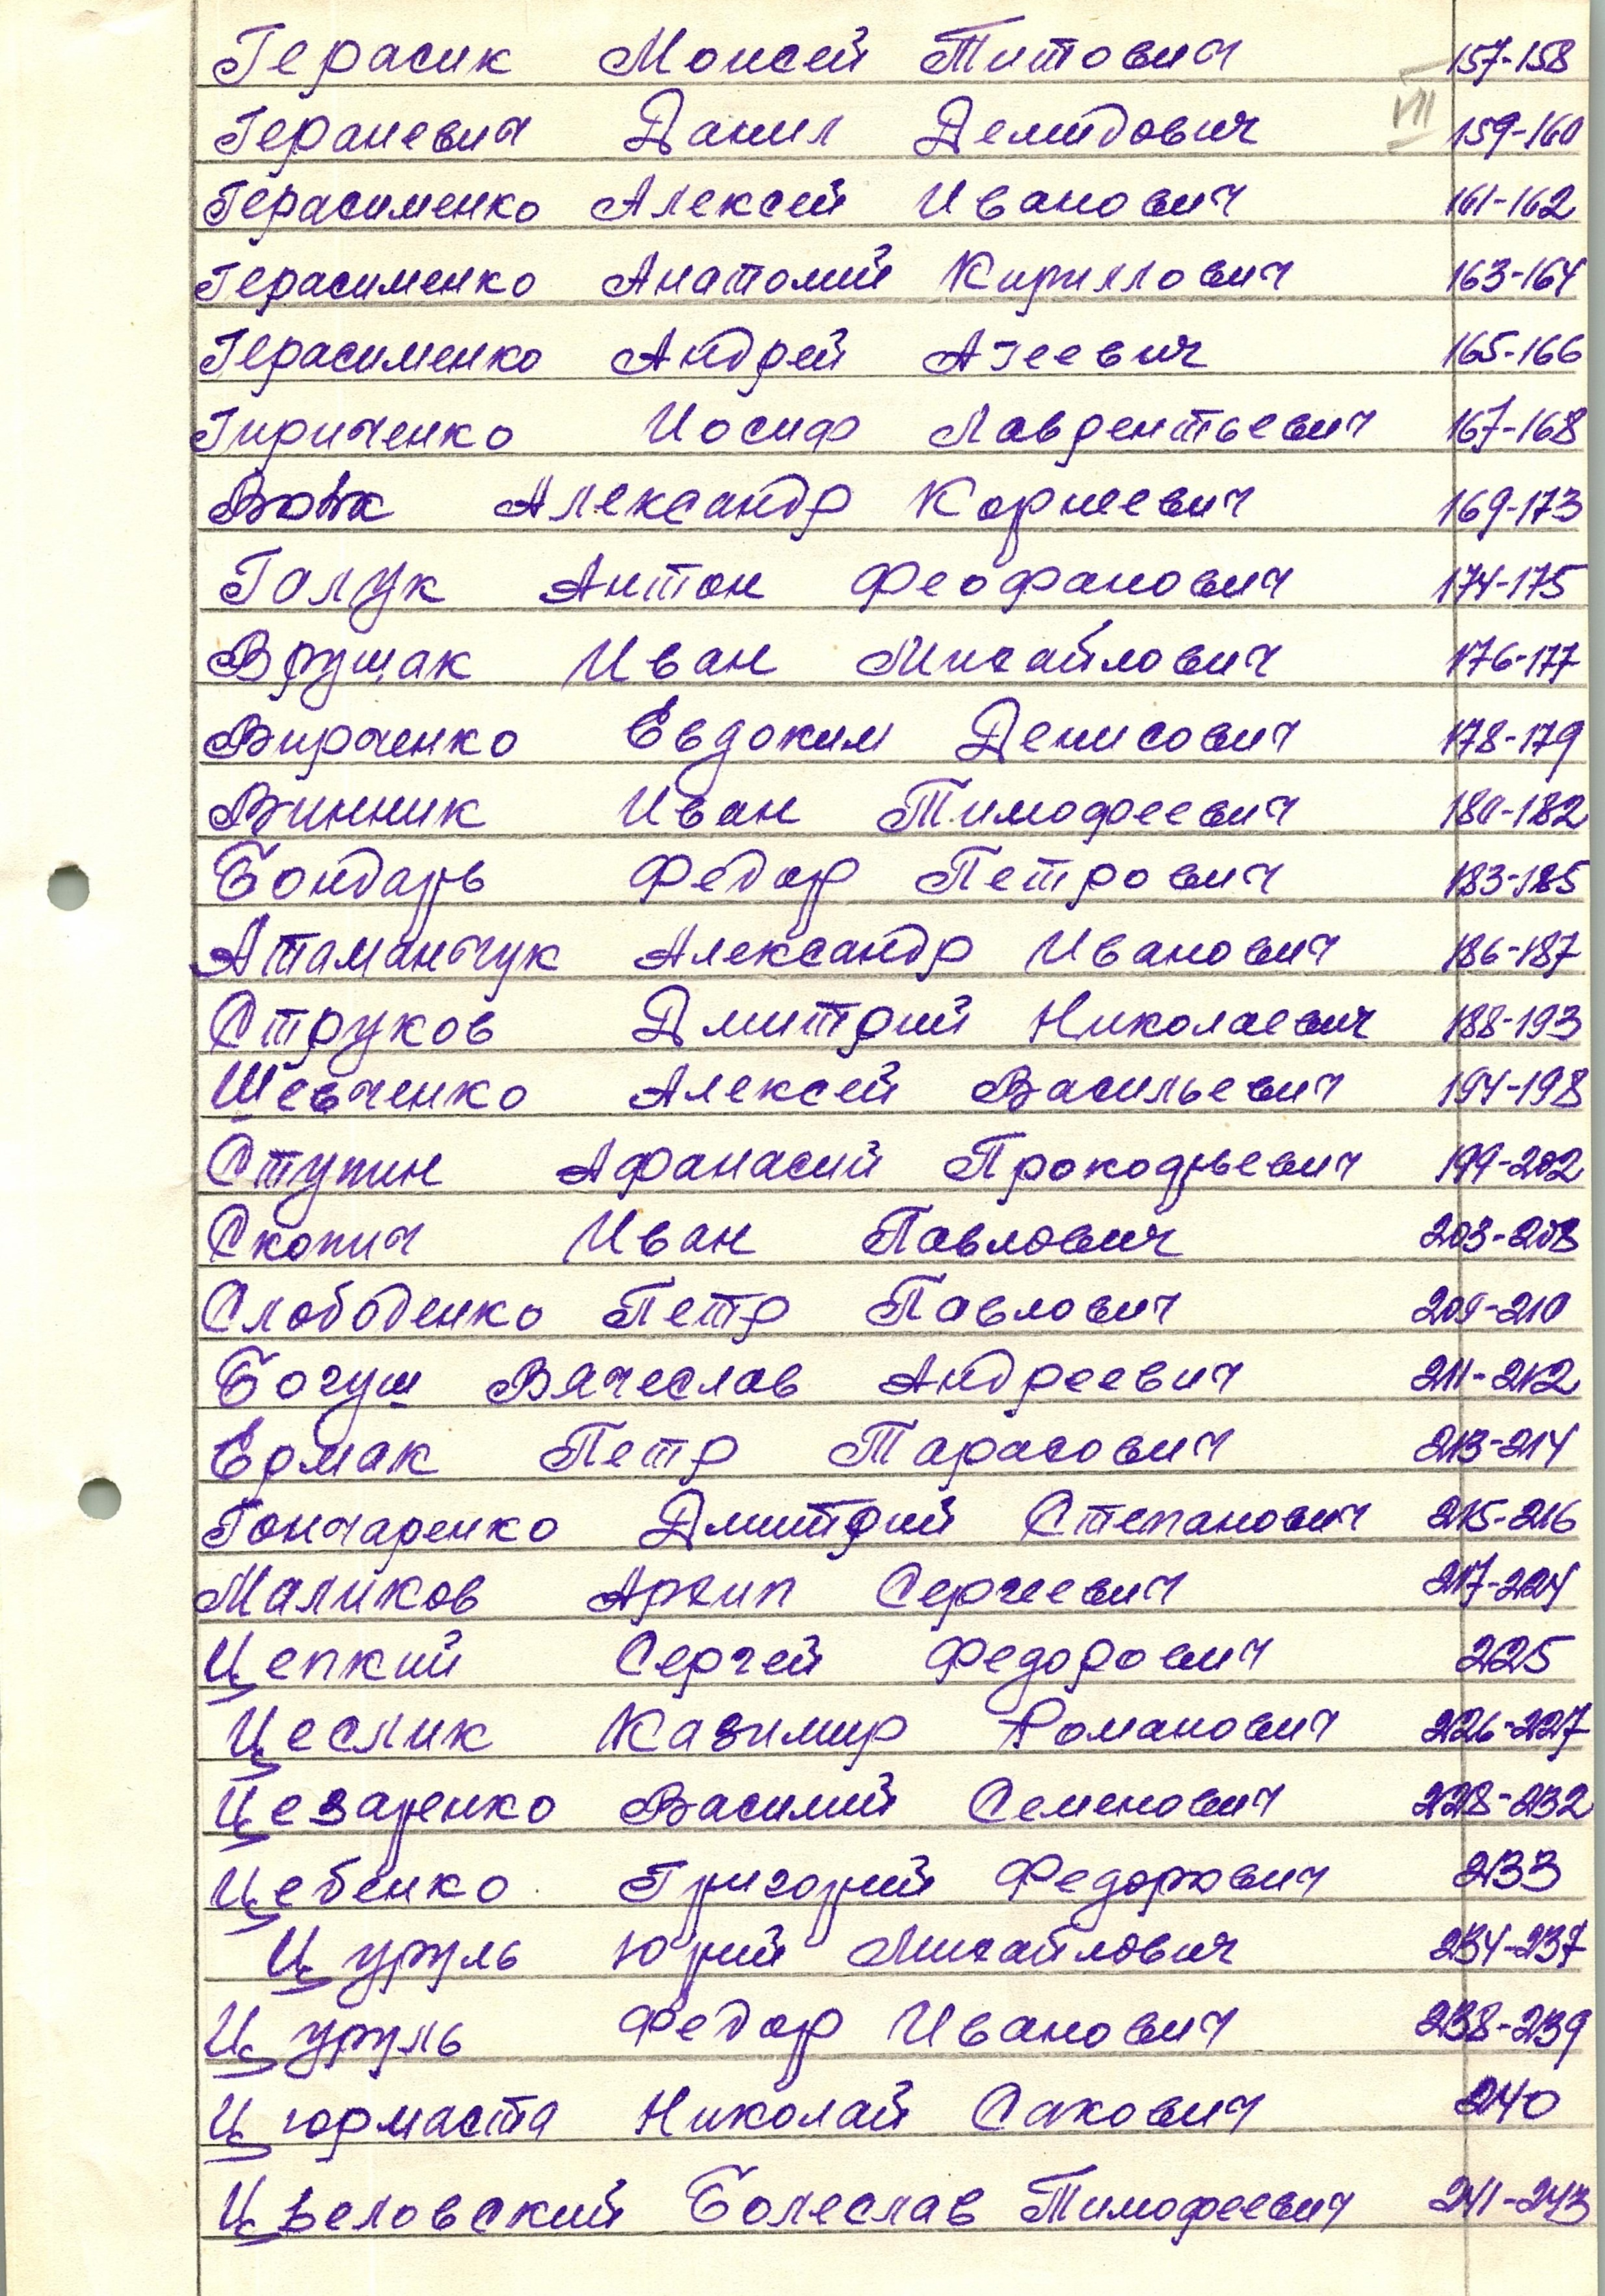 Герасик Моисей Титович 157-158
VII
Гераневич Данил Демидович 159-160
Герасименко Алексей Иванович 161-162
Герасименко Анатолий Кириллович 163-164
Герасименко Андрей Агеевич 165-166
Гириченко Иосиф Лаврентьевич 167-168
Вовк Александр Корнеевич 169-173
Галук Антон Феофанович 174-175
Врущак Иван Михайлович 176-177
Вирченко Евдоким Денисович 178-179
Винник Иван Тимофеевич 180-182
Бондарь Федор Петрович 183-185
Атаманчук Александр Иванович 186-187
Струков Дмитрий Николаевич 188-193
Шевченко Алексей Васильевич 194-198
Ступин Афанасий Прокофьевич 199-202
Скопич Иван Павлович 203-208
Слободенко Петр Павлович 209-210
Богуш Вячеслав Андреевич 211-212
Ермак Петр Тарасович 213-214
Гончаренко Дмитрий Степанович 215-216
Маликов Архип Сергеевич 217-224
Цепкий Сергей Федорович 225
Цеслик Казимир Романович 226-227
Цезаренко Василий Семенович 228-232
Цебенко Григорий Федорович 233
Цуруль Юрий Михайлович 234-237
Цуруль Федор Иванович 238-239
Цюрмаста Николай Сакович 240
Цвеловский Болеслав Тимофеевич 241-243